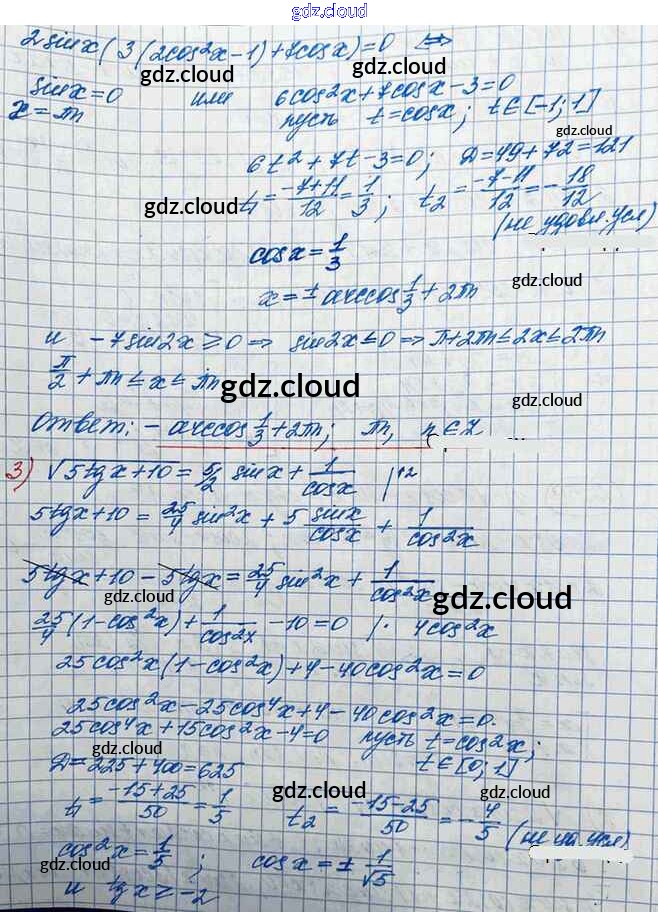 gdz.cloud
2sinx(3(2cos²x-1)+7cosx)=0 ⟺
gdz.cloud
sinx=0 или 6cos²x+7cosx-3=0
x=πn пусть t=cosx; t∈[-1;1]
gdz.cloud gdz.cloud
6t²+7t-3=0; D=49+72=121
t₁=(-7+11)/12=1/3; t₂=(-7-11)/12=-18/12
gdz.cloud
(не удовл. усл)
cosx=1/3
gdz.cloud
x=±arccos1/3+2πn
и -7sin2x≥0⇒ sin2x≤0⇒π+2πn≤2x≤2πn
π/2+πn≤x≤πn
gdz.cloud
gdz.cloud
Ответ: -arccos1/3+2πn; πn, n∈Z
gdz.cloud
3) √(5tgx+10)=5/2 sinx+1/cosx |↑2
gdz.cloud
5tgx+10=25/4 sin²x+5 sinx/cosx+1/cos²x
gdz.cloud
5tgx+10-5tgx=25/4 sin²x+1/cos²x
gdz.cloud gdz.cloud
25/4(1-cos²x)+1/cos²x-10=0 |· 4cos²x
25cos²x(1-cos²x)+4-40cos²x=0
25cos²x-25cos⁴x+4-40cos²x=0.
25cos⁴x+15cos²x-4=0 пусть t=cos²x;
gdz.cloud
D=225+400=625 t∈[0;1]
gdz.cloud gdz.cloud
t₁=(-15+25)/50=1/5 t₂=(-15-25)/50=-4/5
cos²x=1/5; cosx=±1/√5
gdz.cloud gdz.cloud
и tgx≥-2